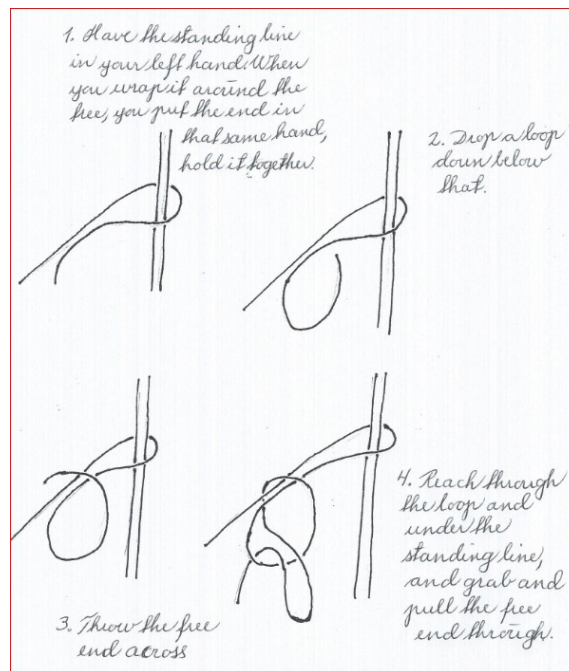 1. Have the standing line
in your left hand. When
you wrap it around the
tree, you put the end in
that same hand,
hold it together.
2. Drop a loop
down below
that.
3. Throw the free
end across
4. Reach through
the loop and
under the
standing line,
and grab and
pull the free
end through.